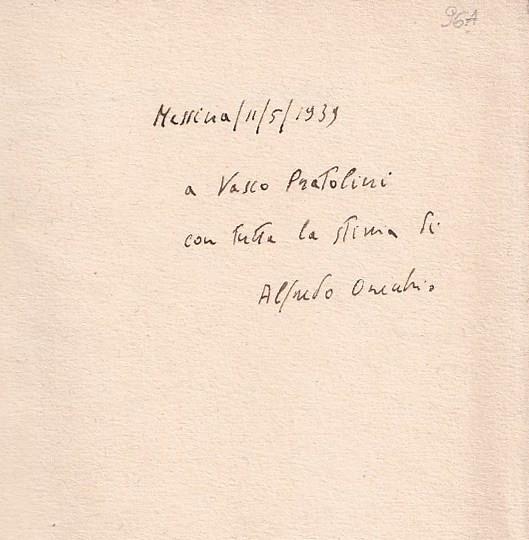 96A
Messina/11/5/1939
a Vasco Pratolini
con tutta la stima di
Alfredo Orecchio